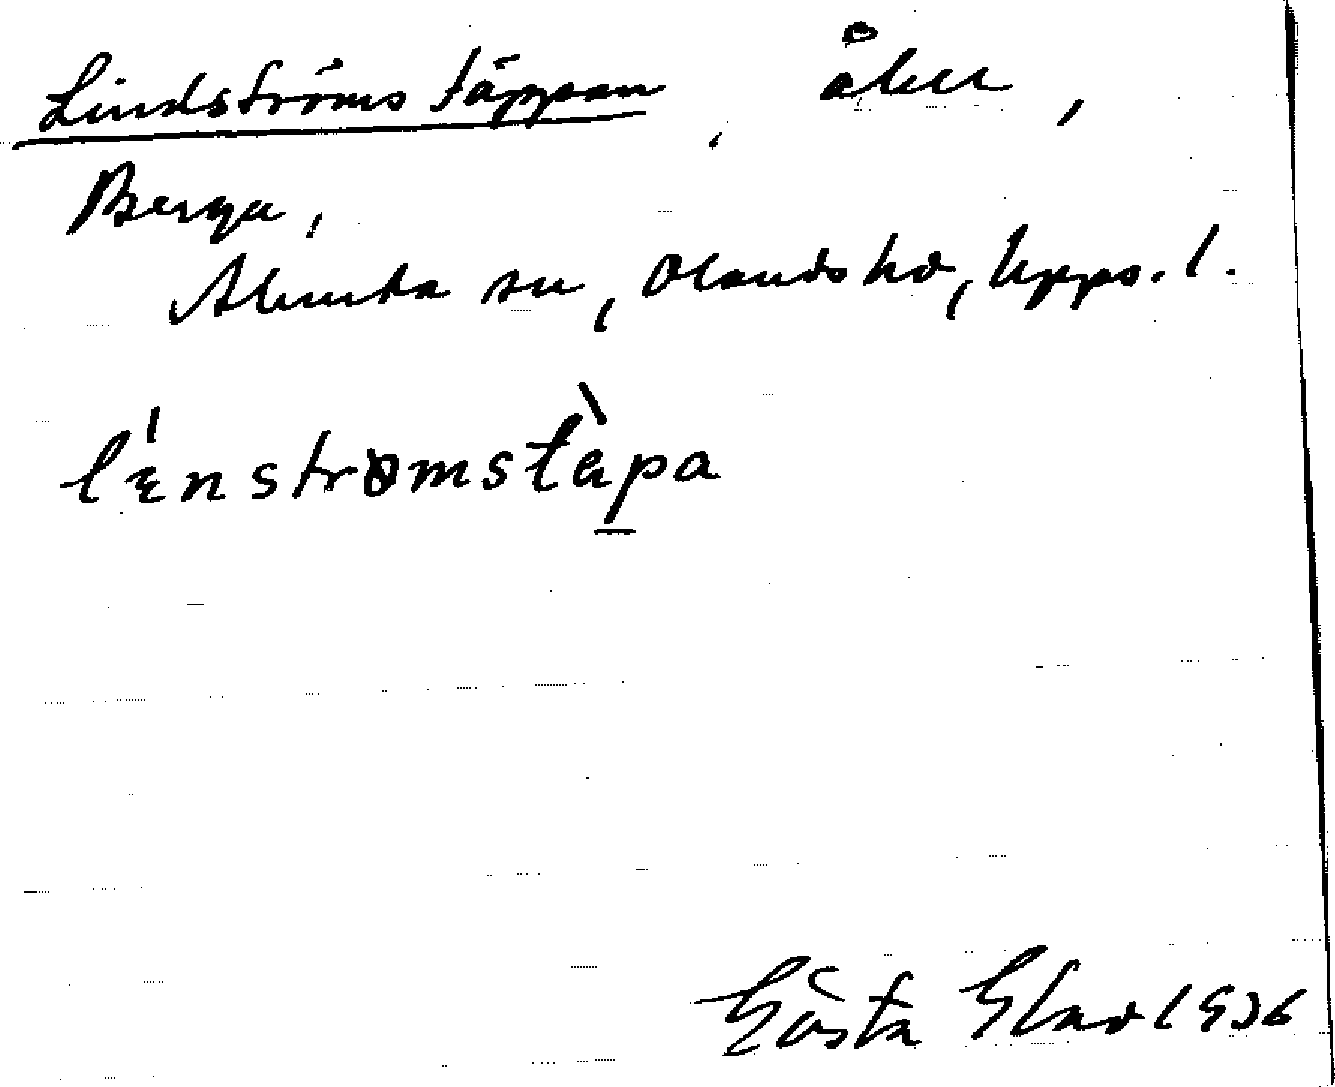 Lindströms täppan, åker,
Berga,
Alunda sn, Olands hd, Upps. l.
lɛ́nstrømstɛ̀pa
Gösta Elad 1936